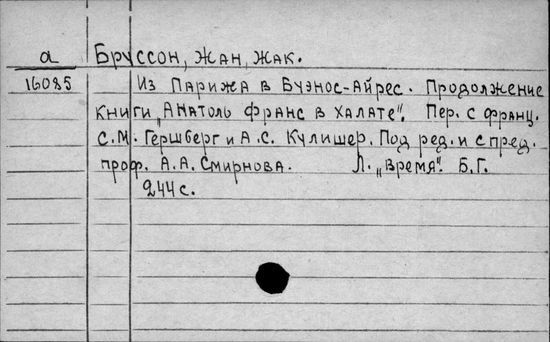 а Бруссон, Жан, Жак.
16085 Из Парижа в Буэнос-Айрес. Продолжение
книги „Анатоль Франс в халате“. Пер. с франц.
С.М. Гершберг и А.С. Кулишер. Под ред. и с пред.
проф. А.А. Смирнова. Л. „Время“. Б.Г.
244 с.